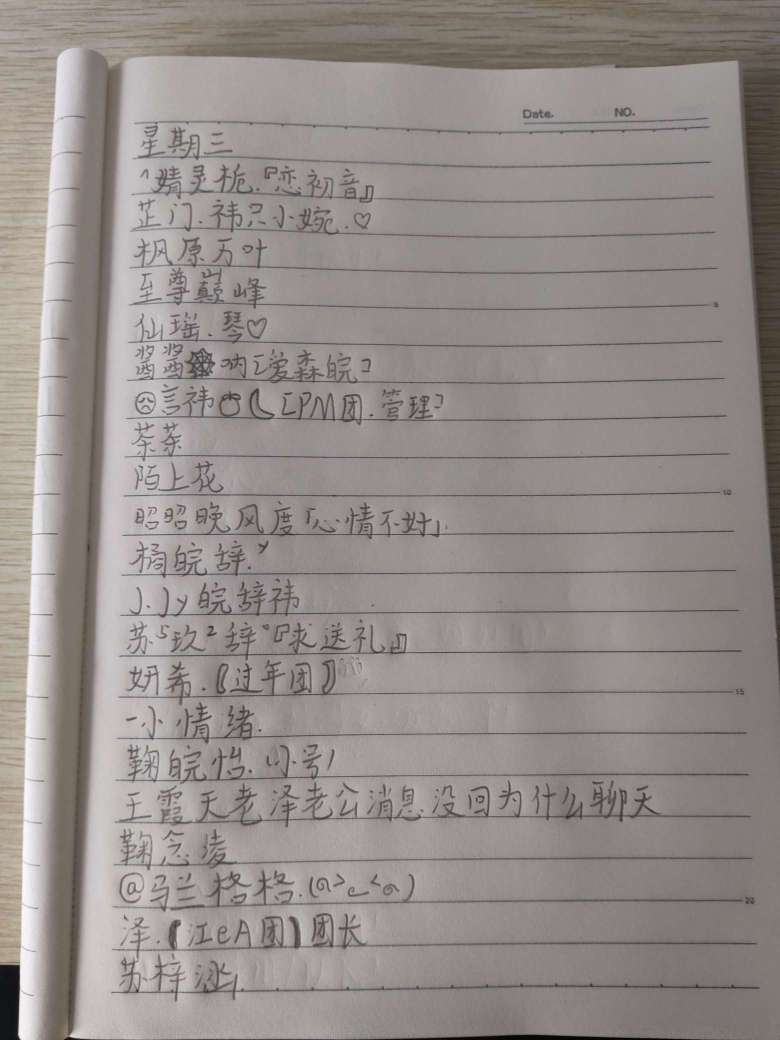 Date. NO.
星期三
^婧灵栀.『恋初音』
芷门.祎只小婉.♡
枫原万叶
至尊巅峰
仙瑶.琴♡
酱酱 呐[爱森皖]
言祎 [PM团.管理]
荼荼
陌上花
昭昭晚风度「心情不好」.
橘皖辞.ʸ
J.Jy皖辞祎
苏⁵玖²辞°『求送礼』
妍希.〖过年团〗
一小情绪.
鞠皖怡.(小号)
王霞天老泽老公消息没回为什么聊天
鞠念凌
@马兰格格.
泽.【江eA团】团长
苏梓
5
10
15
20